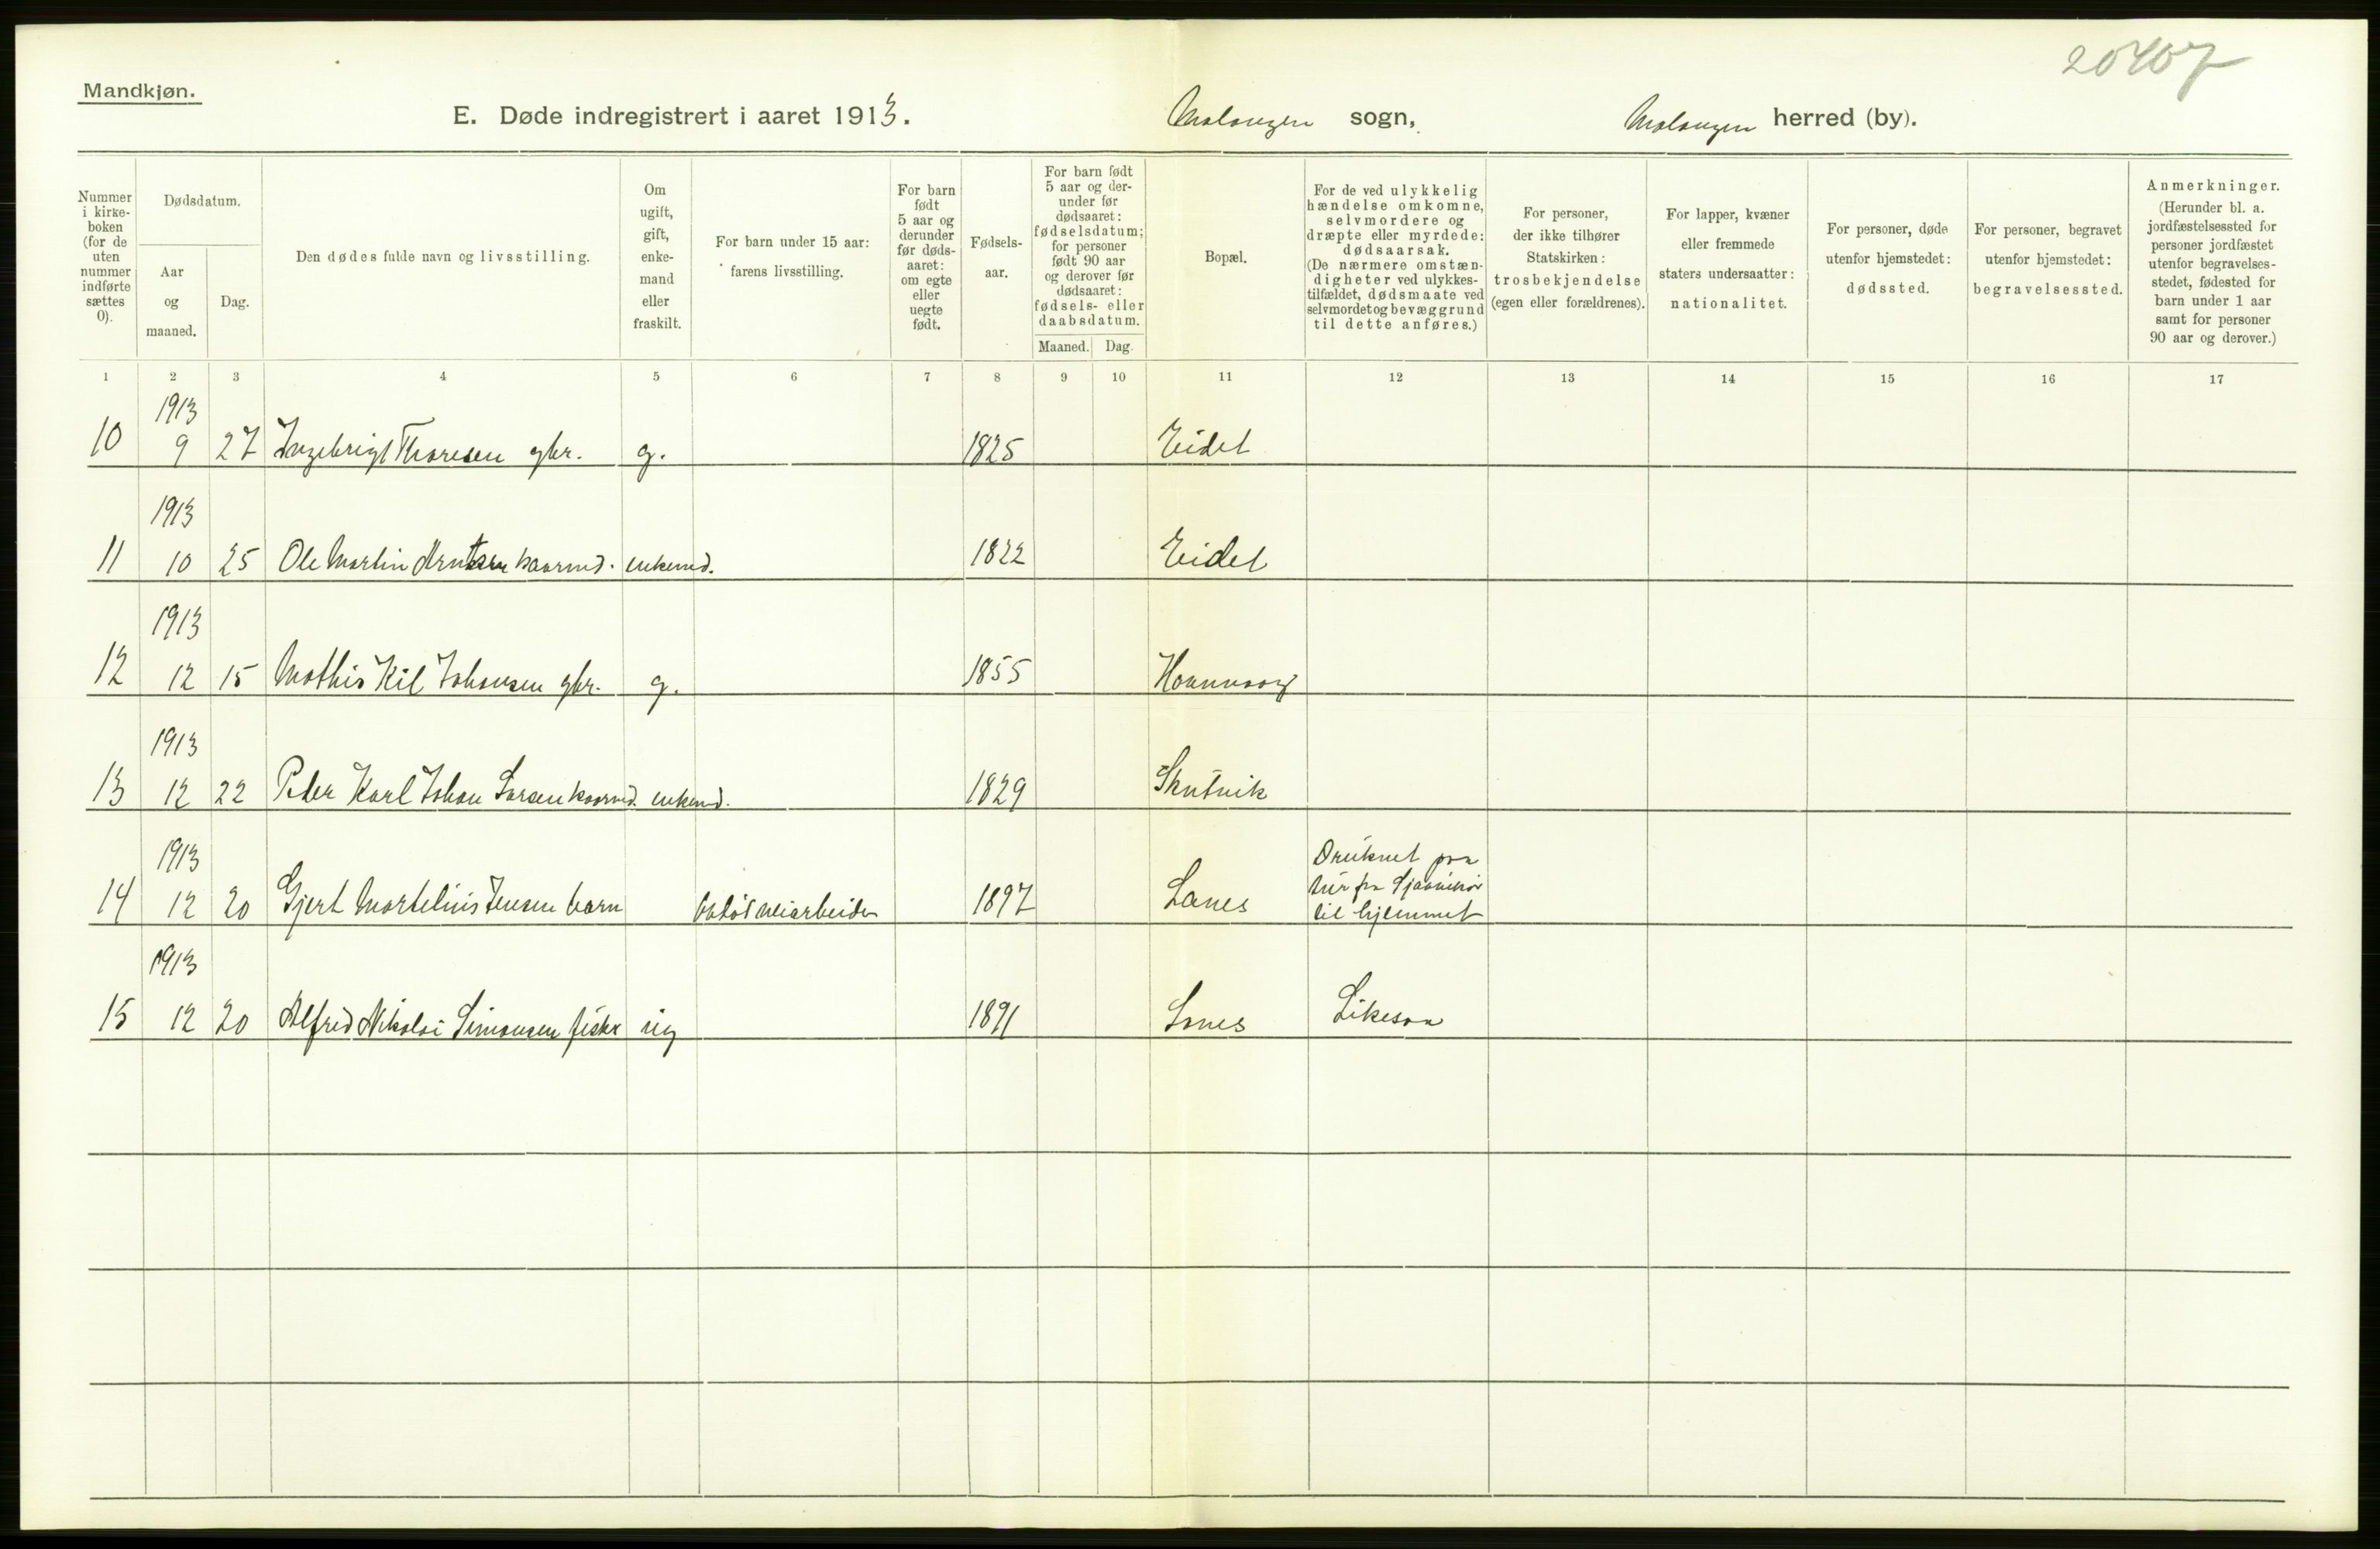 20407
Mandkjøn.
E. Døde indregistrert i aaret 1913. Malangen sogn, Malangen herred (by).
Nummer i kirke-boken (for de uten nummer indførte sættes 0).
Dødsdatum.
Aar og maaned.
Dag.
Den dødes fulde navn og livsstilling.
Om ugift, gift, enke-mand eller fraskilt.
For barn under 15 aar: farens livsstilling.
For barn født 5 aar og derunder før døds-aaret: om egte eller uegte født.
Fødsels-aar.
For barn født 5 aar og der-under før dødsaaret: fødselsdatum; for personer født 90 aar og derover før dødsaaret: fødsels- eller daabsdatum.
Maaned. Dag.
Bopæl.
For de ved ulykkelig hændelse omkomne, selvmordere og dræpte eller myrdede: dødsaarsak. (De nærmere omstæn-digheter ved ulykkes-tilfældet, dødsmaate ved selvmordet og bevæggrund til dette anføres.)
For personer, der ikke tilhører Statskirken: trosbekjendelse (egen eller forældrenes).
For lapper, kvæner eller fremmede staters undersaatter: nationalitet.
For personer, døde utenfor hjemstedet: dødssted.
For personer, begravet utenfor hjemstedet: begravelsessted.
Anmerkninger. (Herunder bl. a. jordfæstelsessted for personer jordfæstet utenfor begravelses-stedet, fødested for barn under 1 aar samt for personer 90 aar og derover.)
1 2 3 4 5 6 7 8 9 10 11 12 13 14 15 16 17
1913
10 9 27 Ingebrigt Thoresen gbr. g. 1825 Eidet
1913
11 10 25 Ole Martin Arntsen kaarmd. enkemd. 1822 Eidet
1913
12 12 15 Mathis Kil Johansen gbr. g. 1855
1913
13 12 22 Peder Karl Johan Larsen kaarmd. enkemd. 1829 Skutvik
1913
Druknet paa
tur fra
14 12 20 Gjert Martelius Jensen barn veiarbeider 1897 Lanes
til hjemmet
1913
15 12 20 Alfred Nikolai Simonsen fisker ug 1891 Lanes Likesaa